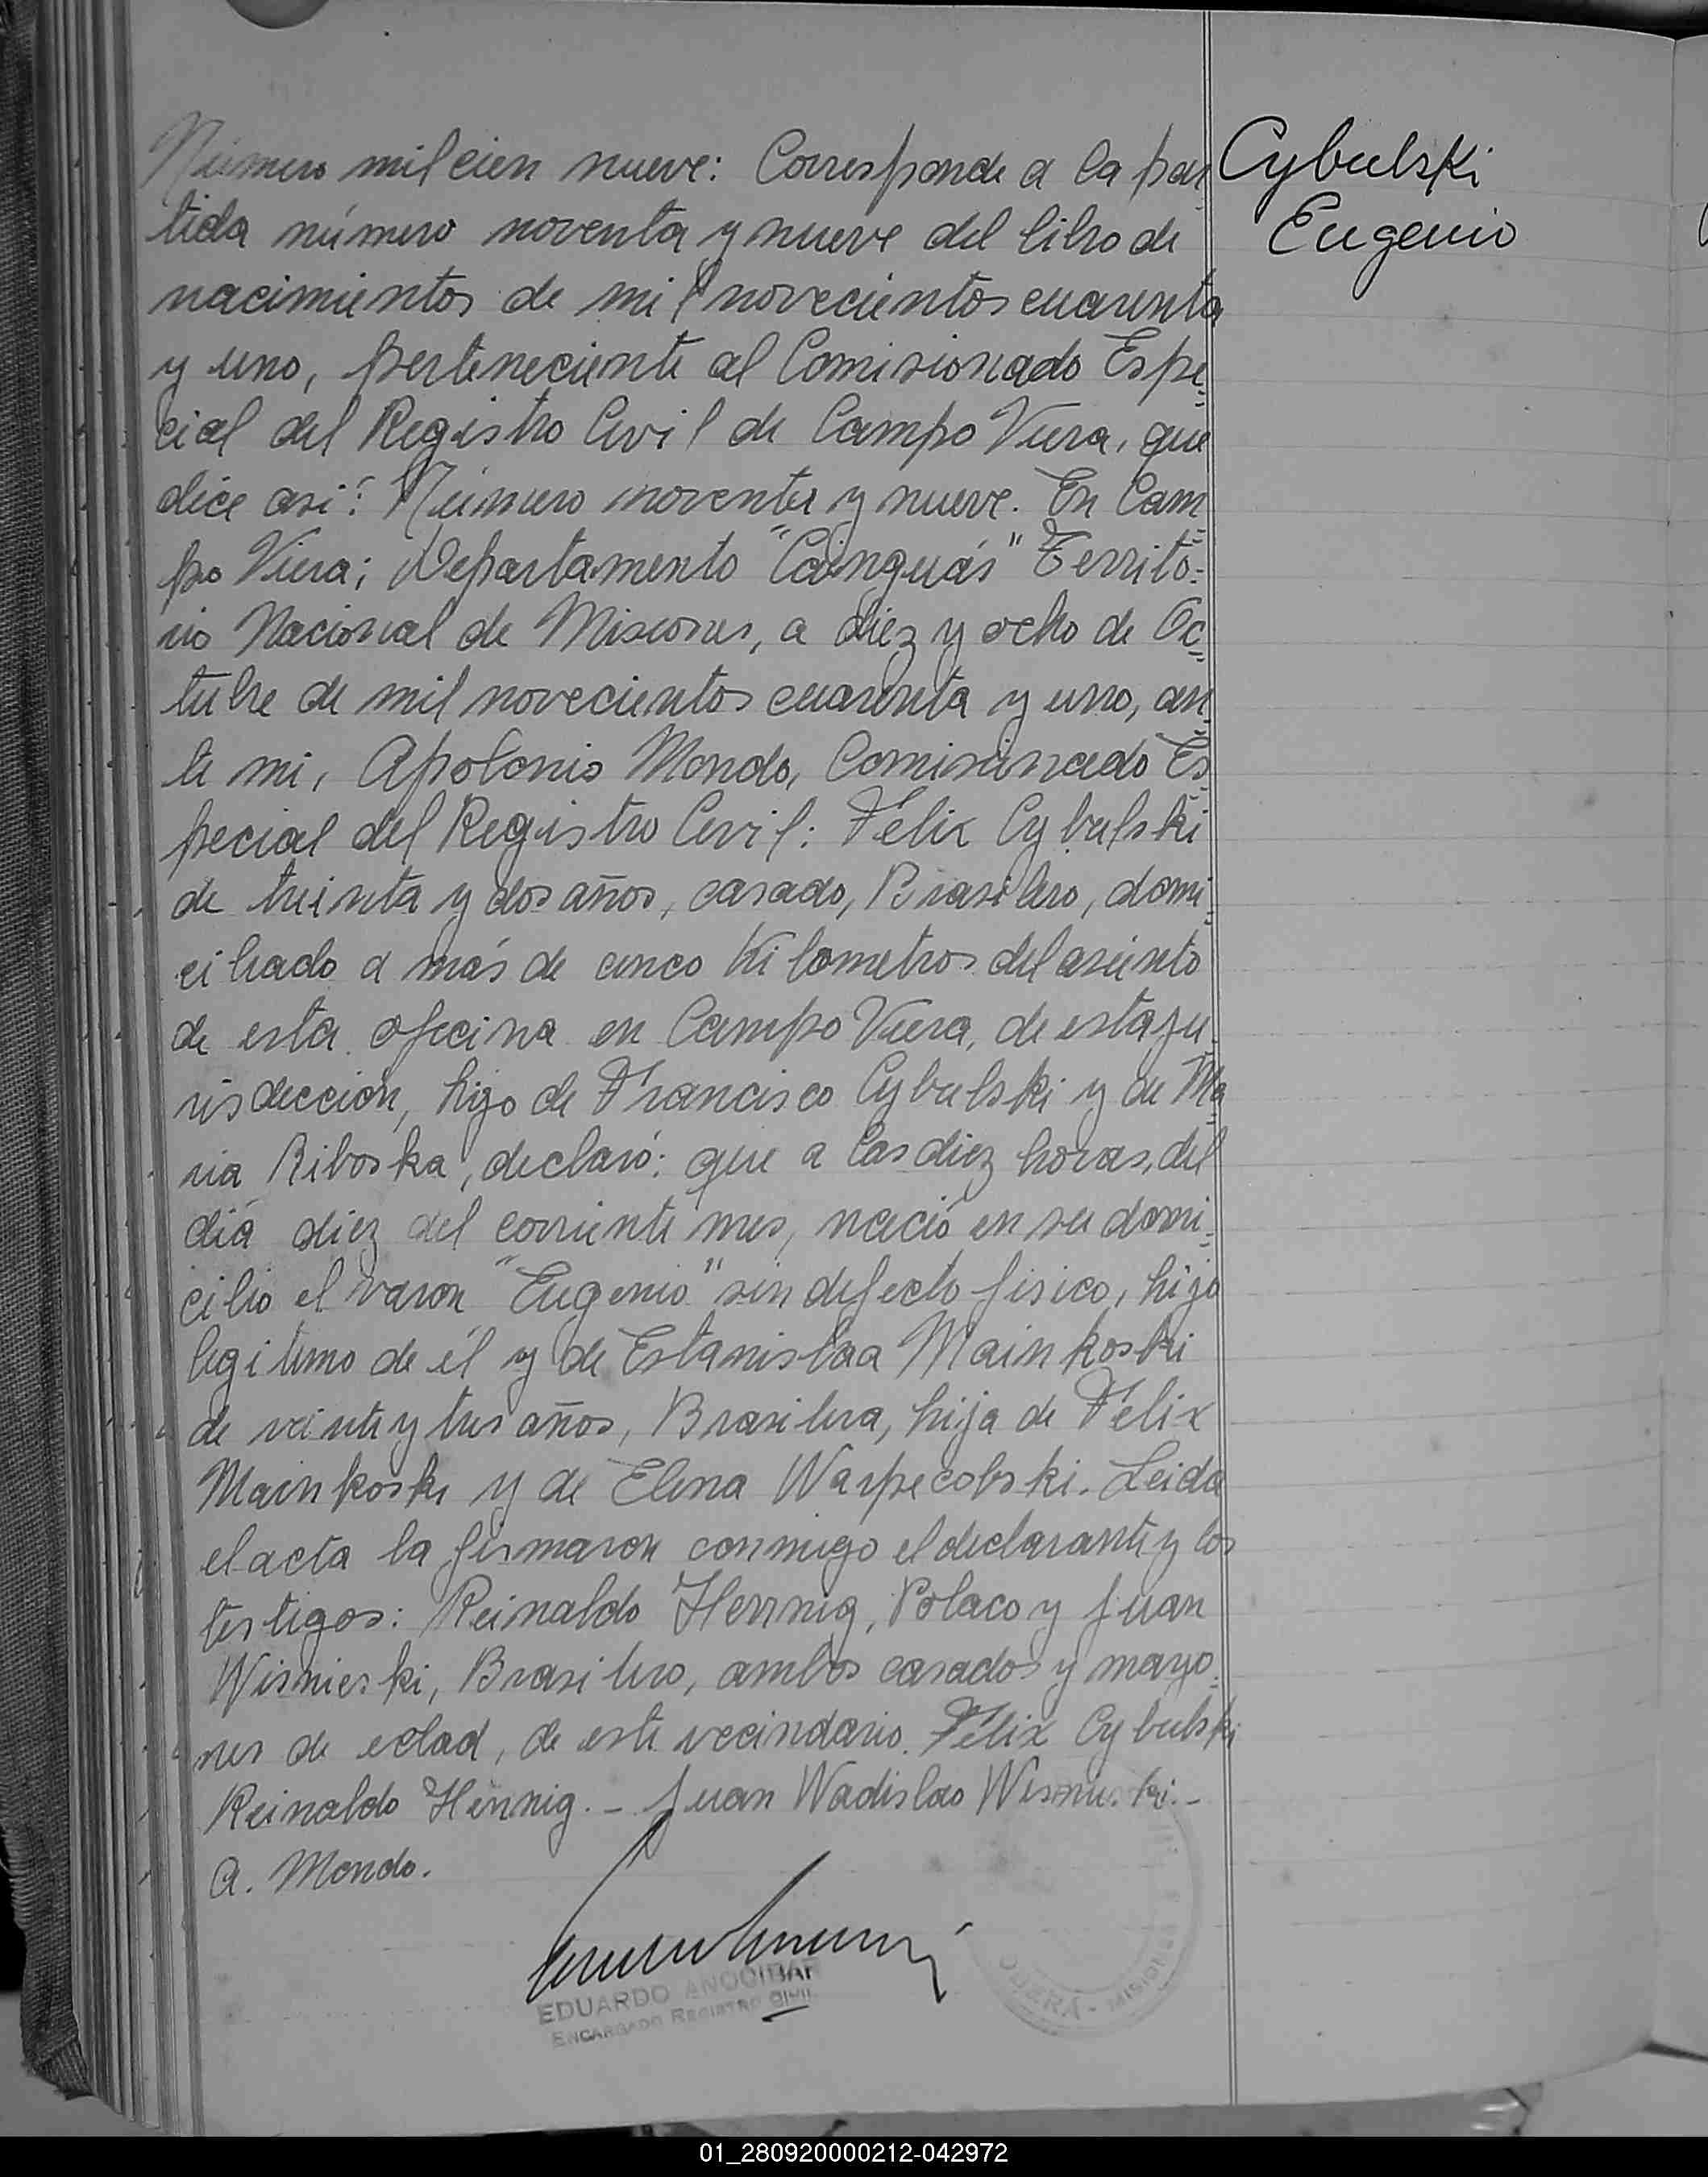 Número mil cien nueve: Corresponde a la par
Cybulski
tida número noventa y nueve del libro de
Eugenio
nacimientos de mil novecientos cuarenta
y uno, perteneciente al Comisionado Espe=
cial del Registro Civil de Campo Viera, que
dice asi: Número noventa y nueve. En Cam=
po Viera; Departamento "Cainguás" Territo=
rio Nacional de Misiones, a diez y ocho de Oc=
tubre de mil novecientos cuarenta y uno, an=
te mi, Apolonio Mondo, Comisionado Es=
pecial del Registro Civil: Félix Cybulski
de treinta y dos años, casado, Brasilero, domi=
ciliado a más de cinco Kilometros del asiento
de esta oficina en Campo Viera, de esta ju=
risdiccion, hijo de Francisco Cybulski y de Ma=
ria Riboska, declaró: que a las diez horas, del
diá diez del corriente mes, nació en su domi=
cilio el varon "Eugenio" sin defecto fisico, hijo
legitimo de él y de Estanislaa Mainkoski
de veinte y tres años, Brasilera, hija de Felix
Mainkoski y de Elena Warpecolski. Leida
el acta la firmaron conmigo el declarante y los
testigos: Reinaldo Herrnig, Polaco y Juan
Wisnieski, Brasilero, ambos casados y mayo=
res de edad, de este vecindario. Félix Cybulski
Reinaldo Hennig. - Juan Wadislao
A. Mondo.
EDUARDO
ENCARGADO REGISTRO CIVIL
OBERÁ - MISIONES
01_280920000212-042972